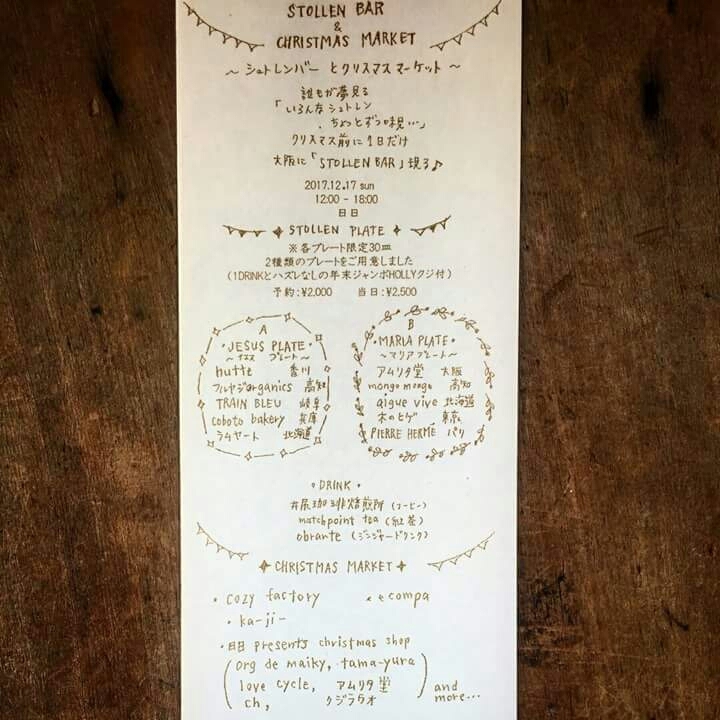 STOLLEN BAR
&
CHRISTMAS MARKET
～ シュトレンバー とクリスマスマーケット ～
誰もが夢見る
「いろんなシュトレン
ちょっとずつ味見…」
クリスマス前に1日だけ
大阪に「STOLLEN BAR」現る♪
2017.12.17 sun
12:00 - 18:00
日日
STOLLEN PLATE
※各プレート限定30皿
2種類のプレートをご用意しました
(1DRINKとハズレなしの年末ジャンボHOLLYクジ付)
予約:¥2,000 当日:¥2,500
A
・JESUS PLATE・
～イエス プレート～
hutte 香川
フルヤジorganics 高知
TRAIN BLEU 岐阜
coboto bakery 兵庫
ラムヤート 北海道
B
・MARIA PLATE・
～マリアプレート～
アムリタ堂 大阪
mongo mongo 高知
aigue vive 北海道
木のヒゲ 東京
PIERRE HERMÉ パリ
・DRINK・
井尻珈琲焙煎所 (コーヒー)
matchpoint tea (紅茶)
obrante (ジンジャードリンク)
CHRISTMAS MARKET
・cozy factory ecompa
・ka-ji-
・日日 presents christmas shop
(org de maiky, tama-yura
love cycle, アムリタ堂
ch, クジラタオ)
and
more...